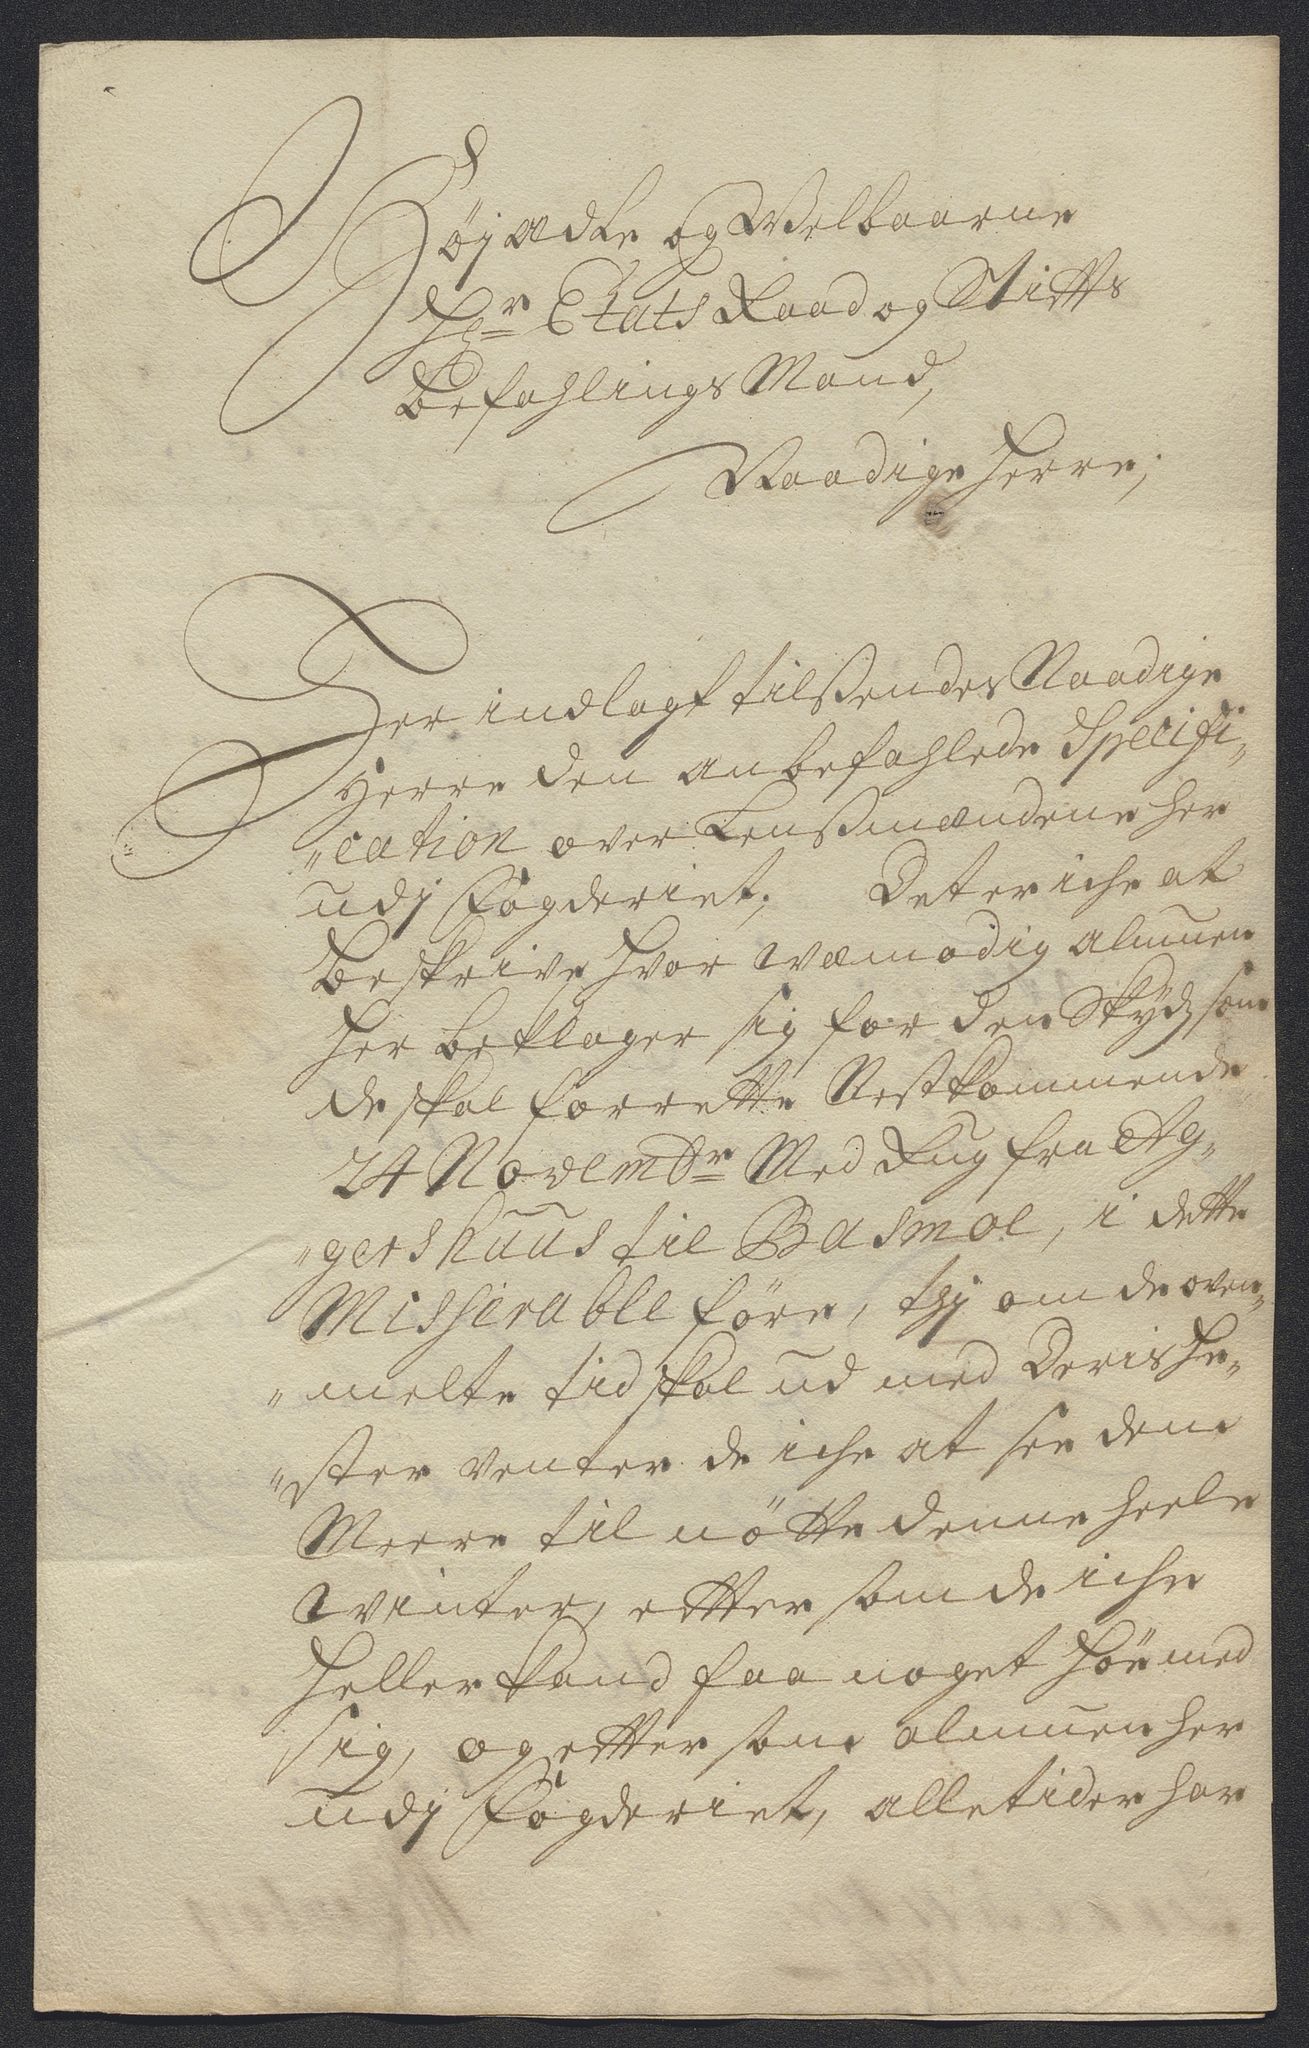 Højædle og Welbaarne
Hr Etats Raad og Stifts
Befahlings Mand,
Naadige Herre;
Her indlagt tilsendes Naadige
Herre den anbefahlede Specifi„
„cation over Lensmændene her
udj Fogderiet; Det er iche at
beskrive hvor wemodig almuen
her beklager sig for den Skyds som
de skal forrette Nestkommende
24 Novembr Med Rug fra Ag„
„gershuus til Basmoe, i dette
Misserable føre, thj om de oven„
„melte tid skal ud med Deris He„
„ster venter de iche at see dem
Meere til nøtte denne heele
winter, efter som de iche
heller kand faa noget Høe med
sig, og efter som almuen her
udj Fogderiet, alletider har